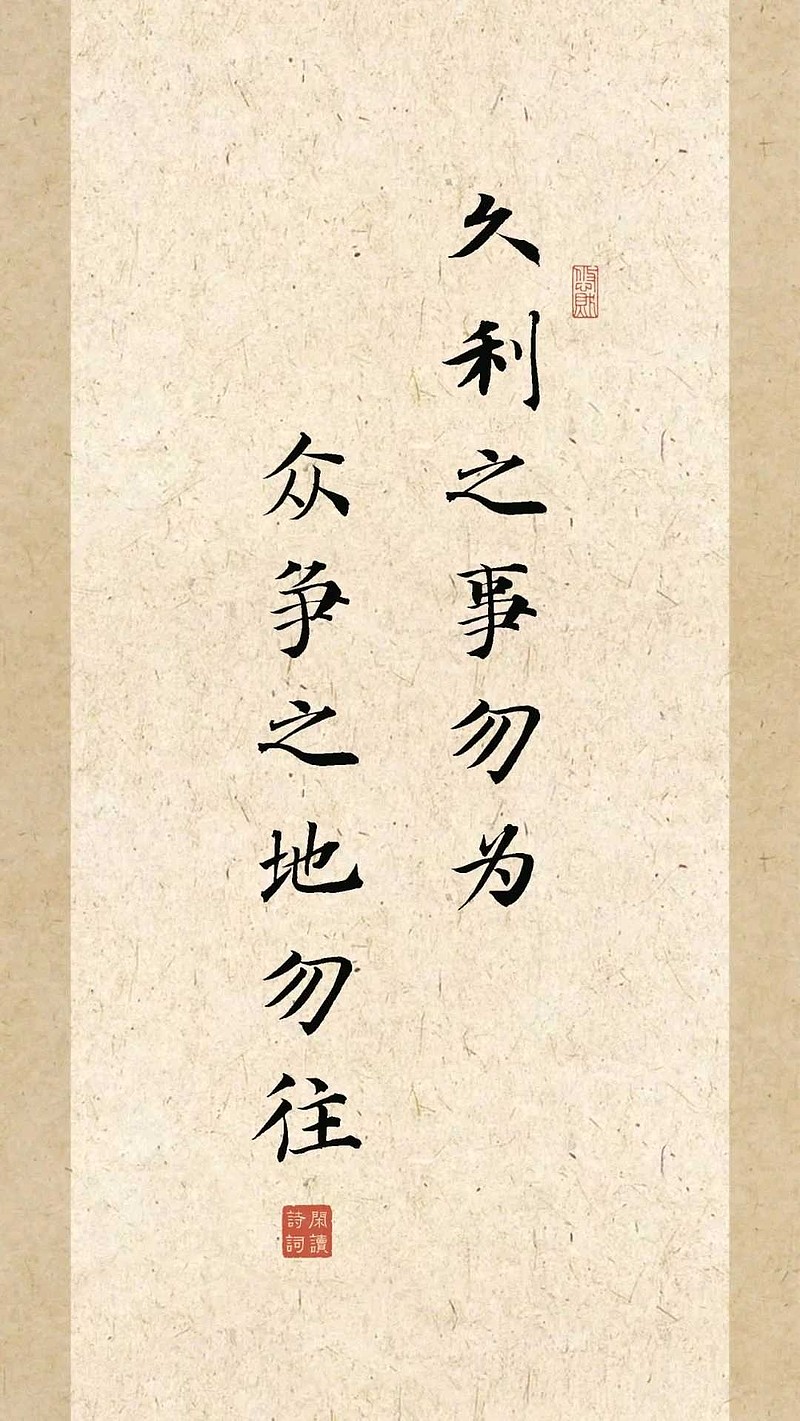 久利之事勿为
众争之地勿往
閑讀
詩詞